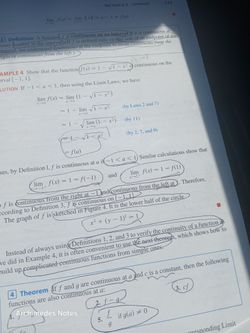 3 Definition A function f is continuous on an interval if it is continuous at
EXAMPLE 4 Show that the function f(x) = 1 − √1 − x² is continuous on the
interval [−1, 1].
SOLUTION If −1 < a < 1, then using the Limit Laws, we have
lim f(x) = lim (1 − √1 − x²)
= 1 − lim √1 − x² (by Laws 2 and 7)
= 1 − √lim (1 − x²) (by 11)
= 1 − √1 − a² (by 2, 7, and 9)
= f(a)
Thus, by Definition 1, f is continuous at a if −1 < a < 1. Similar calculations show that
lim f(x) = 1 = f(−1) and lim f(x) = 1 = f(1)
so f is continuous from the right at −1 and continuous from the left at 1. Therefore,
according to Definition 3, f is continuous on [−1, 1].
The graph of f is sketched in Figure 4. It is the lower half of the circle
x² + (y − 1)² = 1
Instead of always using Definitions 1, 2, and 3 to verify the continuity of a function as
we did in Example 4, it is often convenient to use the next theorem, which shows how to
build up complicated continuous functions from simple ones.
4 Theorem If f and g are continuous at a and c is a constant, then the following
functions are also continuous at a:
2. f − g 3. cf
5. f/g if g(a) ≠ 0
Archimedes Notes